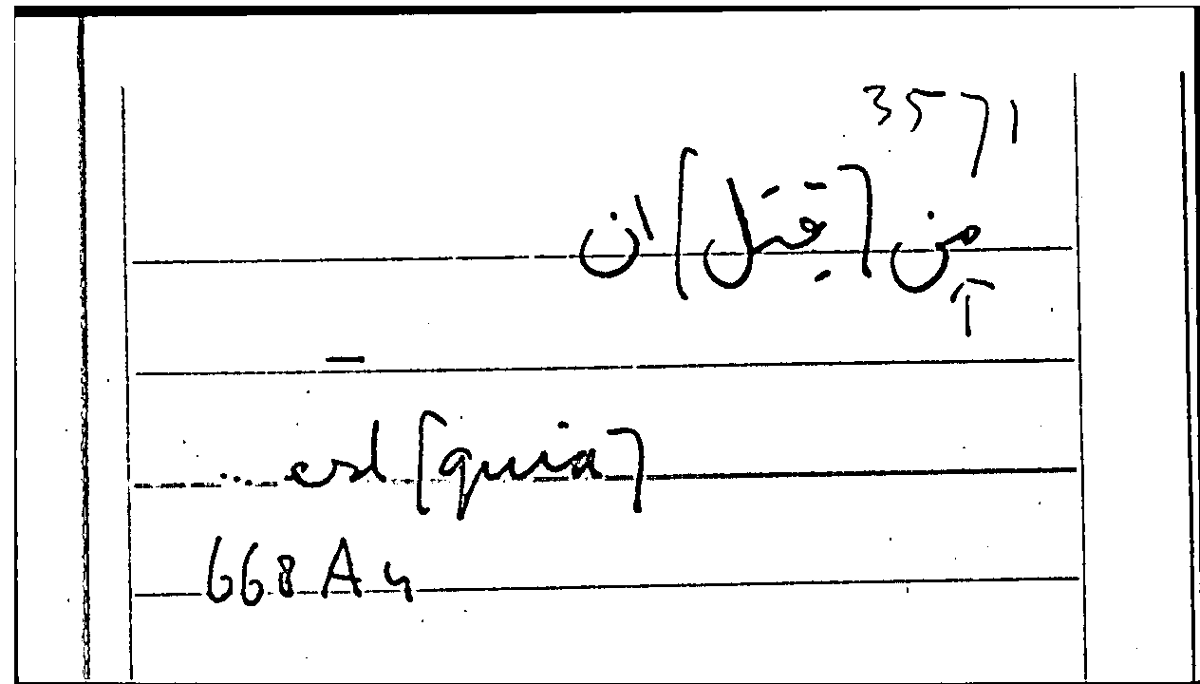 3571
من [قبل] ان
↑
... est [quia]
668 A 4